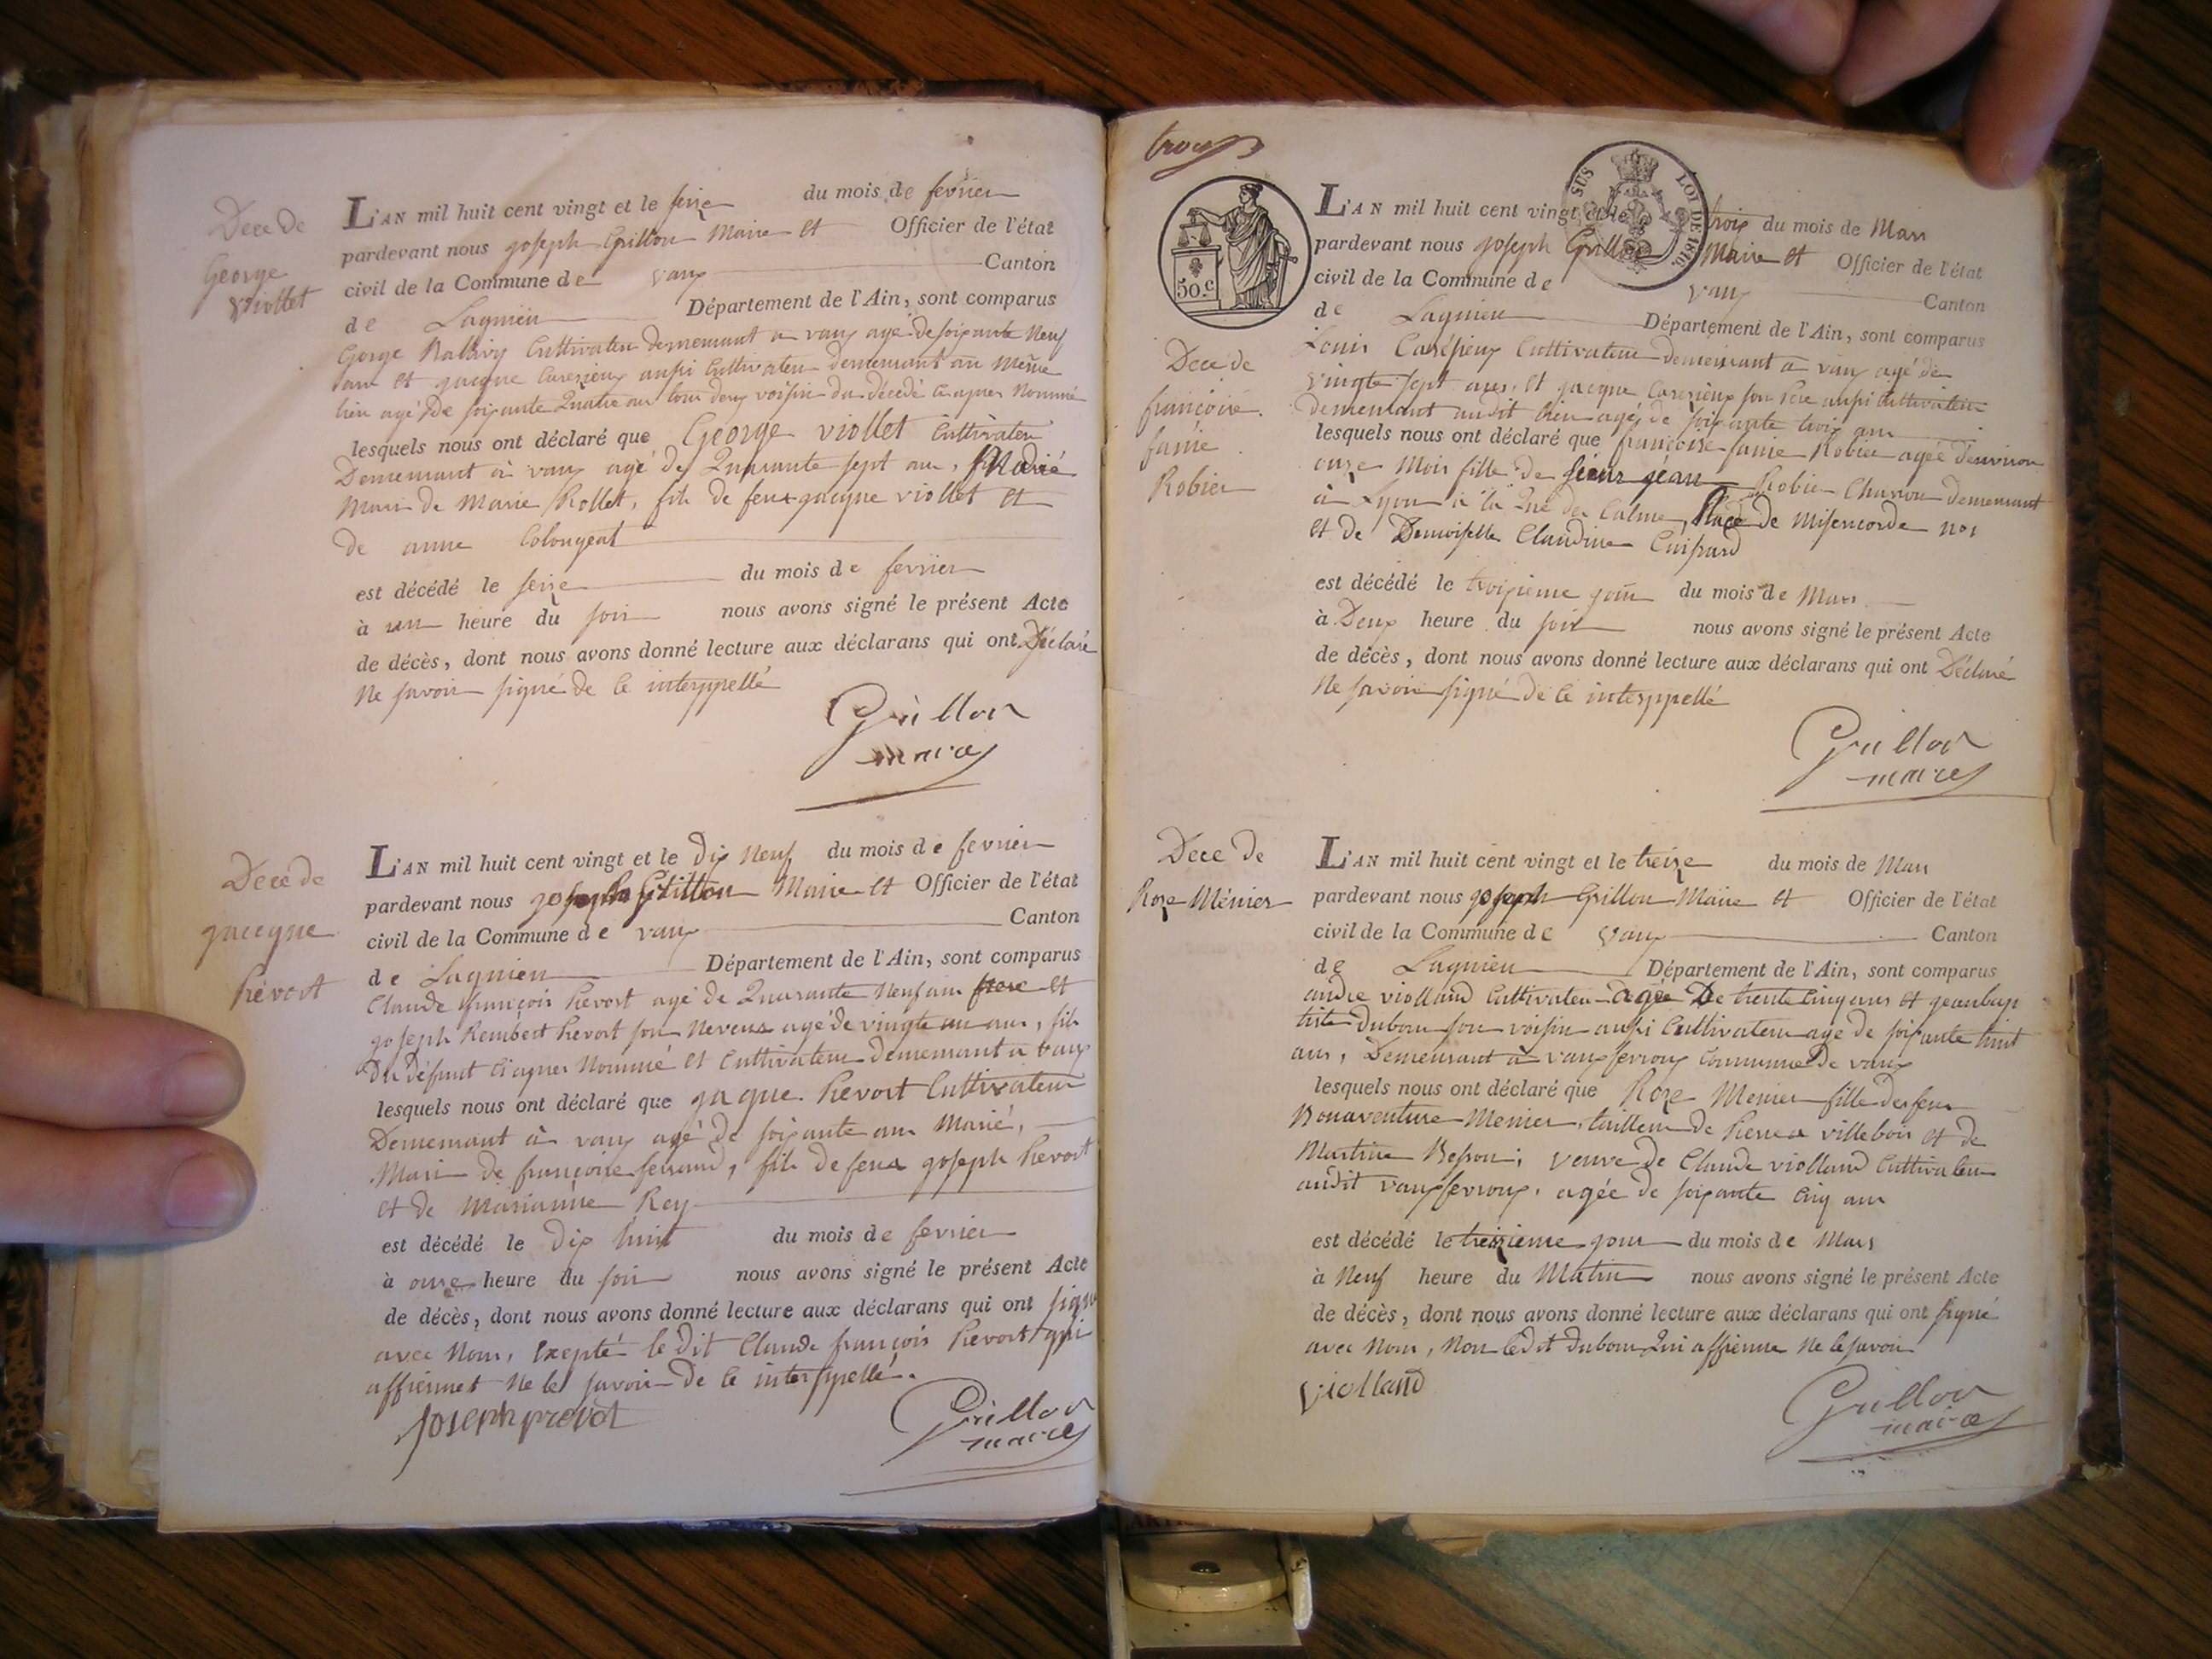 Dece de
George
viollet
L'AN mil huit cent vingt et le seize du mois de fevrier
pardevant nous joseph Grillon Maire et Officier de l'état
civil de la Commune de vaux Canton
de Lagnieu Département de l'Ain, sont comparus
Gorge cultivateur demeurant a vaux agé de soixante Neuf
ans et jacque aussi cultivateur demeurant au Même
lieu agé de soixante Quatre ans tous deux voisin du décédé ci apres Nommé
lesquels nous ont déclaré que George viollet Cultivateur
Demeurant à vaux agé de Quarante sept ans,
Mari de Marie Rollet, fils de feu jacque viollet et
de anne Colongeat
est décédé le seize du mois de fevrier
à un heure du soir nous avons signé le présent Acte
de décès, dont nous avons donné lecture aux déclarans qui ont Déclaré
Ne savoir signé de ce interppellé
Grillon
maire
Dece de
jacque
Prévost
L'AN mil huit cent vingt et le dix Neuf du mois de fevrier
pardevant nous joseph Grillon Maire et Officier de l'état
civil de la Commune de vaux Canton
de Lagnieu Département de l'Ain, sont comparus
Claude françois Prevost agé de Quarante Neuf ans frere et
joseph Rembert Prevost son Neveux agé de vingte un ans, fils
du défunt ci apres Nommé et Cultivateur demeurant a vaux
lesquels nous ont déclaré que jaque Prevost Cultivateur
Demeurant à vaux agé de soixante ans Marié,
Mari de françoise ferrand, fils de feux joseph Prevost
et de Marianne Rey
est décédé le dix huit du mois de fevrier
à onze heure du soir nous avons signé le présent Acte
de décès, dont nous avons donné lecture aux déclarans qui ont signé
avec Nous, Exepté le dit Claude françois Prevost qui
affirmet Ne le savoir De ce interppellé.
Joseph prevot
Grillon
maire
trois
SUS LOI DE 1816
50.c
Dece de
françoise
fanie
Robier
L'AN mil huit cent vingt et le trois du mois de Mars
pardevant nous joseph Grillon Maire et Officier de l'état
civil de la Commune de vaux Canton
de Lagnieu Département de l'Ain, sont comparus
Louis Cultivateur demeurant a vaux agé de
vingte sept ans, et jacque son Pere aussi Cultivateur
demeurant audit lieu agé de soixante trois ans
lesquels nous ont déclaré que françoise fanie Robier agée d'environ
onze Mois fille de sieur jean Robier demeurant
à Lyon à la Place de Misericorde
et de Demoiselle Claudine
est décédé le troizieme jour du mois de Mars
à Deux heure du soir nous avons signé le présent Acte
de décès, dont nous avons donné lecture aux déclarans qui ont Déclaré
Ne savoir signé de ce interppellé
Grillon
maire
Dece de
Roze Ménier
L'AN mil huit cent vingt et le treize du mois de Mars
pardevant nous joseph Grillon Maire et Officier de l'état
civil de la Commune de vaux Canton
de Lagnieu Département de l'Ain, sont comparus
andre violland Cultivateur agée De trente Cinq ans et jeanbap
tiste Dubour son voisin aussi Cultivateur agé de soixante huit
ans, Demeurant à vauxfevroux Commune De vaux
lesquels nous ont déclaré que Roze Menier fille de feu
Bonaventure Menier, tailleur de Pierre a villebois et de
Martine Besson, veuve de Claude violland Cultivateur
audit vauxfevroux, agée de soixante Cinq ans
est décédé le treizieme jour du mois de Mars
à Neuf heure du Matin nous avons signé le présent Acte
de décès, dont nous avons donné lecture aux déclarans qui ont signé
avec Nous, Non ledit Dubour Qui affirme Ne le savoir
violland
Grillon
maire